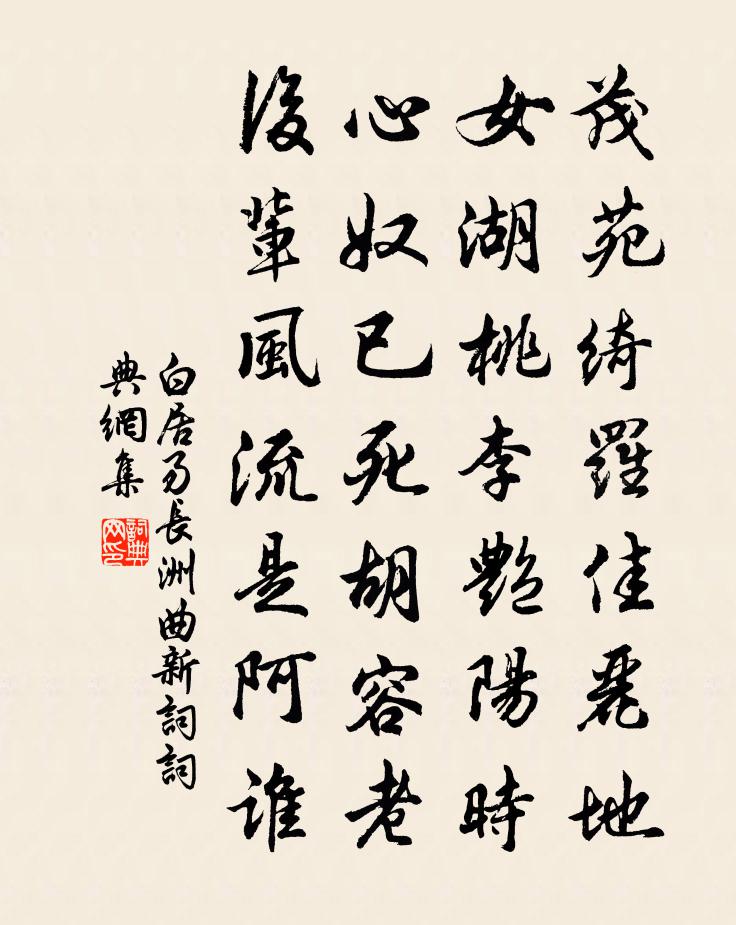 茂苑綺羅佳麗地
女湖桃李艷陽時
心奴已死胡容老
後輩風流是阿誰
白居易長洲曲新詞詞
典網集
詞典
网印